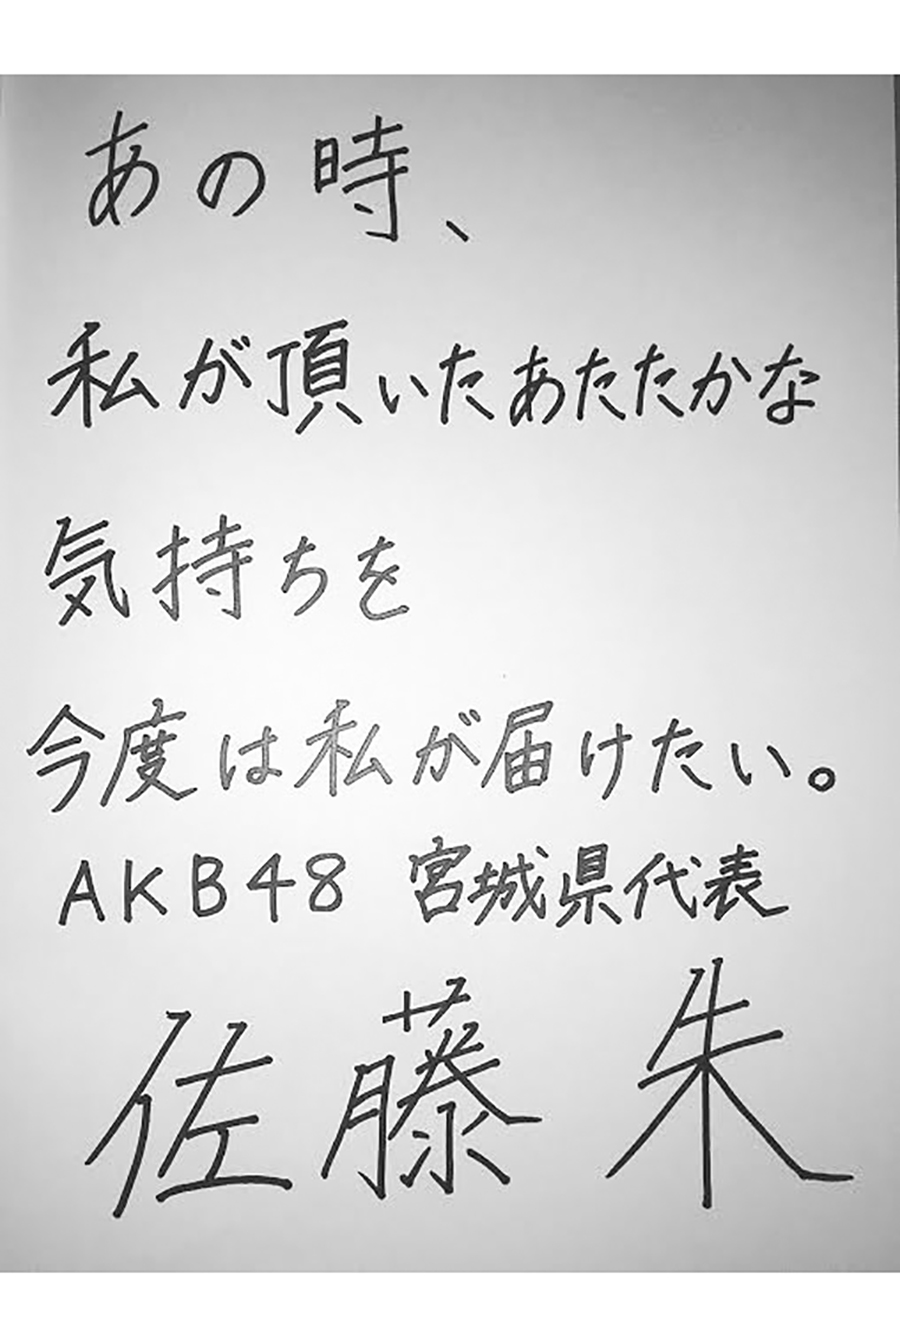 あの時、
私が頂いたあたたかな
気持ちを
今度は私が届けたい。
AKB48 宮城県代表
佐藤朱